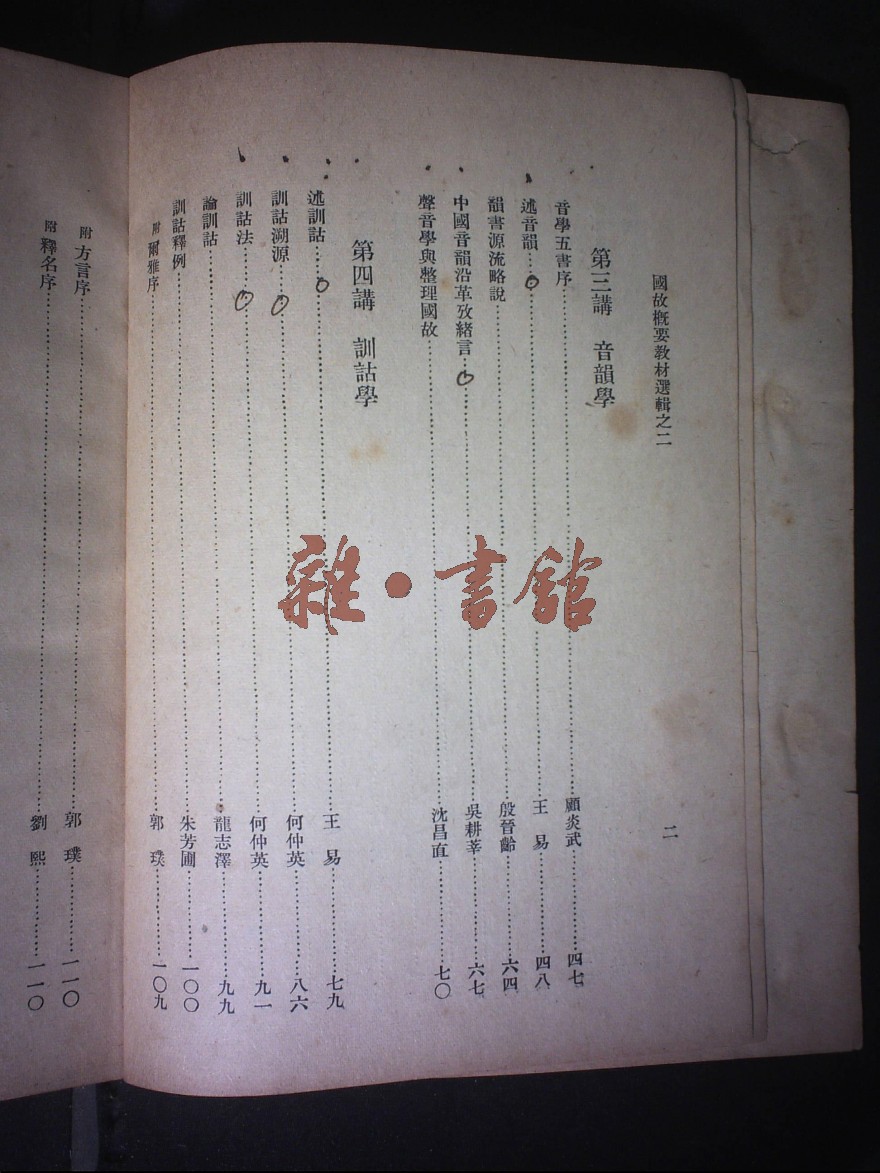 國故概要教材選輯之二
二
第三講 音韻學
音學五書序……顧炎武……四七
述音韻……王易……四八
韻書源流略說……殷晉齡……六四
中國音韻沿革攷緒言……吳耕莘……六七
聲音學與整理國故……沈昌直……七〇
第四講 訓詁學
述訓詁……王易……七九
訓詁溯源……何仲英……八六
訓詁法……何仲英……九一
論訓詁……龍志澤……九九
訓詁釋例……朱芳圃……一〇〇
附爾雅序……郭璞……一〇九
附方言序……郭璞……一一〇
附釋名序……劉熙……一一〇
雜·書館